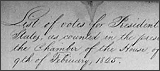 List of votes for President
States, as counted in the pres
the Chamber of the House of
9th of February, 1865.